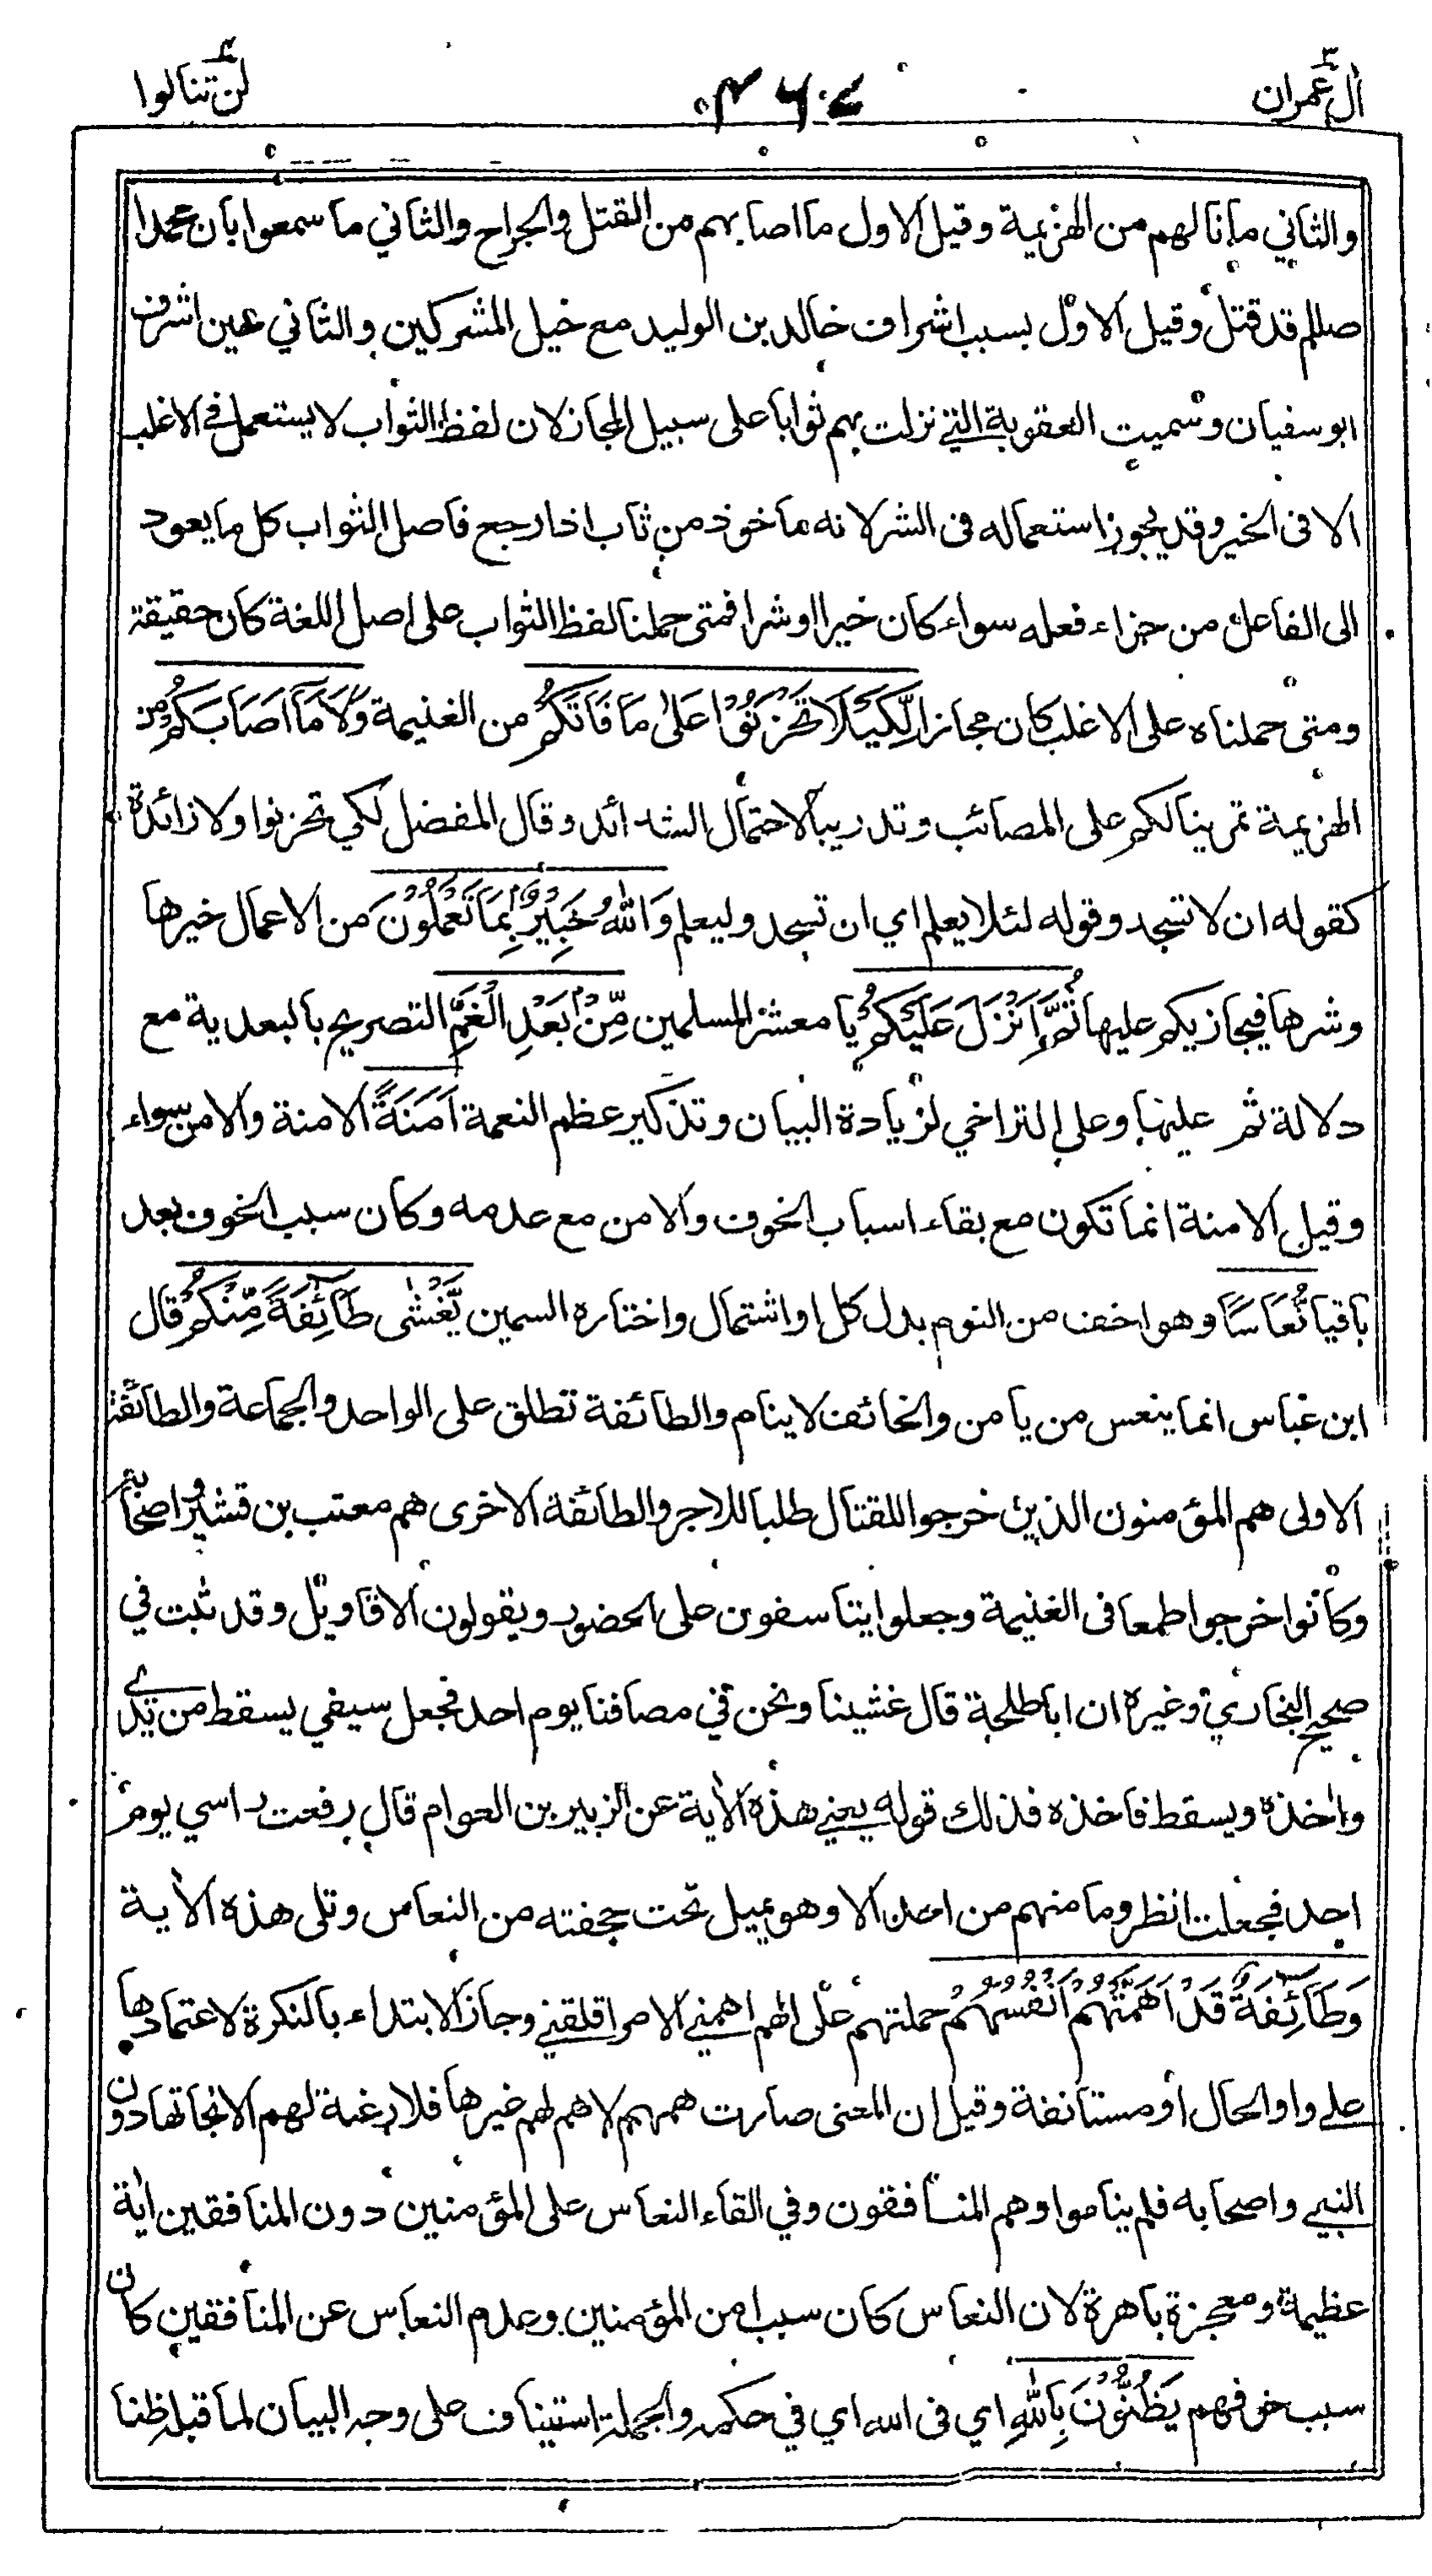 اٰل عمران ٣
٤٦٠
لن تنالوا ٤
والثاني ما نالهم من الهزيمة وقيل الاول ما اصابهم من القتل والجراح والثاني ما سمعوا بان محمدا
صللم قد قتل وقيل الاول بسبب اشراف خالد بن الوليد مع خيل المشركين والثاني حين اشرف
ابو سفيان وسميت العقوبة التي نزلت بهم ثوابا على سبيل المجاز لان لفظ الثواب لا يستعمل في الاغلب
الا فى الخير وقد يجوز استعماله فى الشر لانه ماخوذ من ثاب اذا رجع فاصل الثواب كل ما يعود
الى الفاعل من جزاء فعله سواء كان خيرا او شرا فمتى حملنا لفظ الثواب على اصل اللغة كان حقيقة
ومتى حملناه على الاغلب كان مجازا لِّكَيْلَا تَحْزَنُوْا عَلٰى مَا فَاتَكُمْ من الغنيمة وَلَا مَآ اَصَابَكُمْ من
الهزيمة تمرينا لكم على المصائب وتدريبا لاحتمال الشدائد وقال المفضل لكي تحزنوا ولا زائدة
كقوله ان لا تسجد وقوله لئلا يعلم اي ان تسجد وليعلم وَاللّٰهُ خَبِيْرٌۢ بِمَا تَعْمَلُوْنَ من الاعمال خيرها
وشرها فيجازيكم عليها ثُمَّ اَنْزَلَ عَلَيْكُمْ يا معشر المسلمين مِّنْۢ بَعْدِ الْغَمِّ التصريح بالبعدية مع
دلالة ثم عليها وعلى التراخي لزيادة البيان وتذكير عظم النعمة اَمَنَةً الامنة والامن سواء
وقيل الامنة انما تكون مع بقاء اسباب الخوف والامن مع عدمه وكان سبب الخوف بعد
باقيا نُّعَاسًا وهو اخف من النوم بدل كل او اشتمال واختاره السمين يَّغْشٰى طَآئِفَةً مِّنْكُمْ قال
ابن عباس انما ينعس من يامن والخائف لا ينام والطائفة تطلق على الواحد والجماعة والطائفة
الاولى هم المؤمنون الذين خرجوا للقتال طلبا للاجر والطائفة الاخرى هم معتب بن قشير واصحابه
وكانوا خرجوا طمعا فى الغنيمة وجعلوا يتاسفون على الحضور ويقولون الاقاويل وقد ثبت في
صحيح البخاري وغيره ان ابا طلحة قال غشينا ونحن في مصافنا يوم احد فجعل سيفي يسقط من يدي
واٰخذه ويسقط فاخذه فذلك قوله يعني هذه الاٰية عن الزبير بن العوام قال رفعت راسي يوم
احد فجعلت انظر وما منهم من احد الا وهو يميل تحت حجفته من النعاس وتلى هذه الاٰية
وَطَآئِفَةٌ قَدْ اَهَمَّتْهُمْ اَنْفُسُهُمْ حملتهم على الهم اهمني الامر اقلقني وجاز الابتداء بالنكرة لاعتمادها
على واو الحال او مستانفة وقيل ان المعنى صارت همهم لا هم لهم غيرها فلا رغبة لهم الا نجاتها دون
النبي واصحابه فلم يناموا وهم المنافقون وفي القاء النعاس على المؤمنين دون المنافقين اٰية
عظيمة ومعجزة باهرة لان النعاس كان سبب امن المؤمنين وعدم النعاس عن المنافقين كان
سبب خوفهم يَظُنُّوْنَ بِاللّٰهِ اي فى الله اي في حكمه والجملة استيناف على وجه البيان لما قبله ظنا